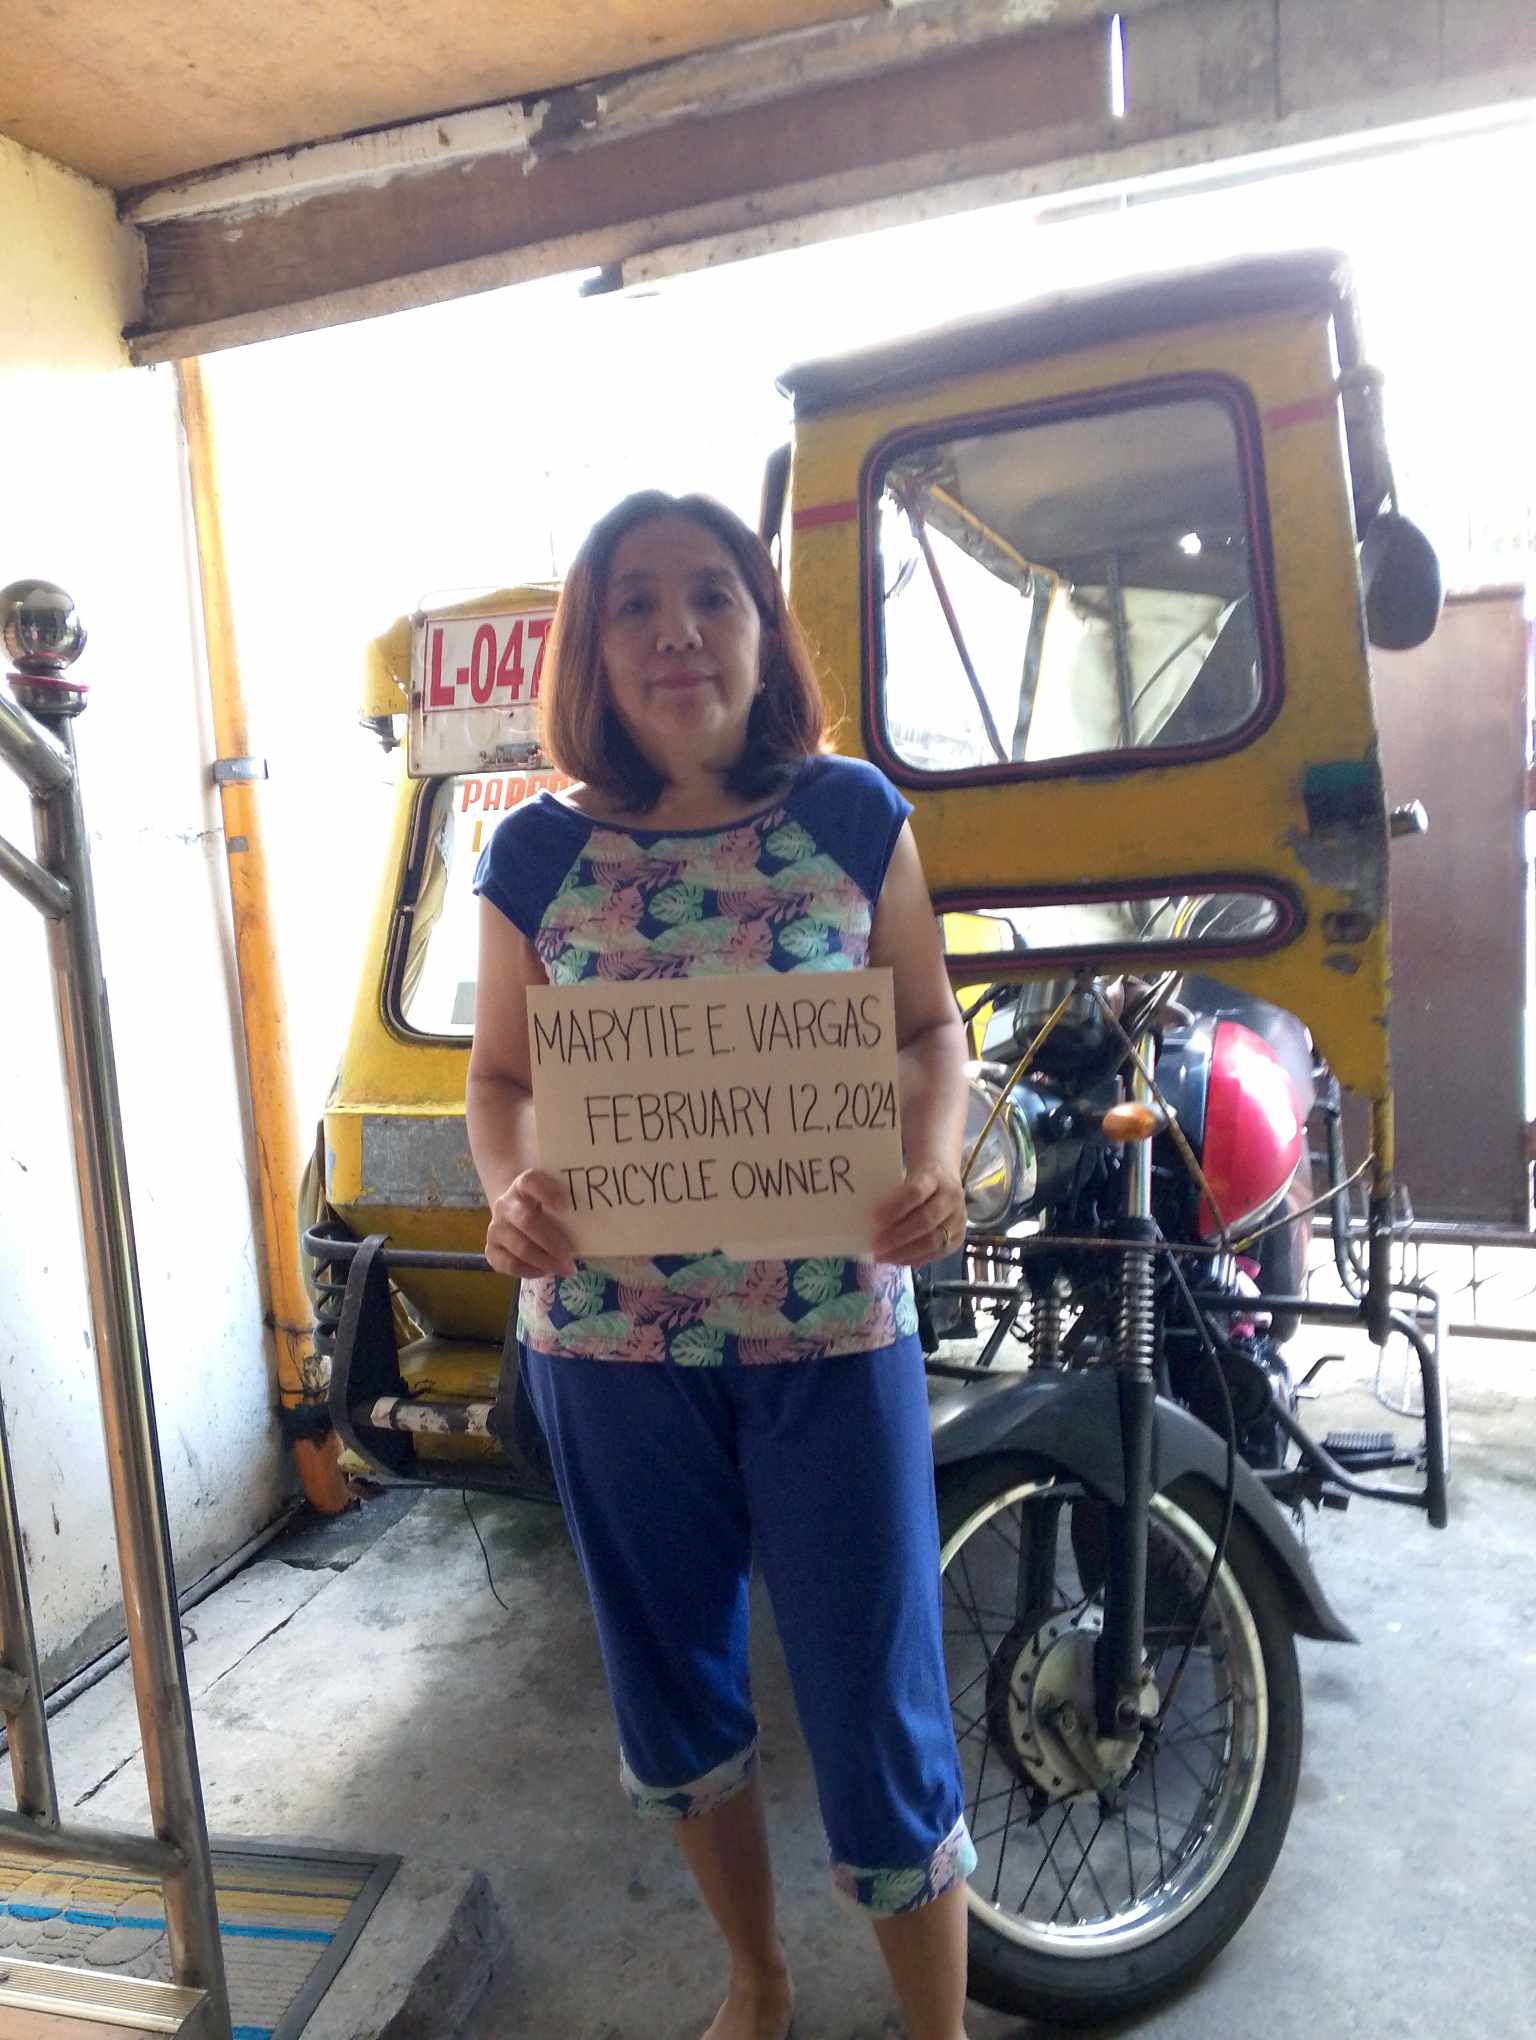 L-047
MARYTIE E. VARGAS
FEBRUARY 12, 2024
TRICYCLE OWNER